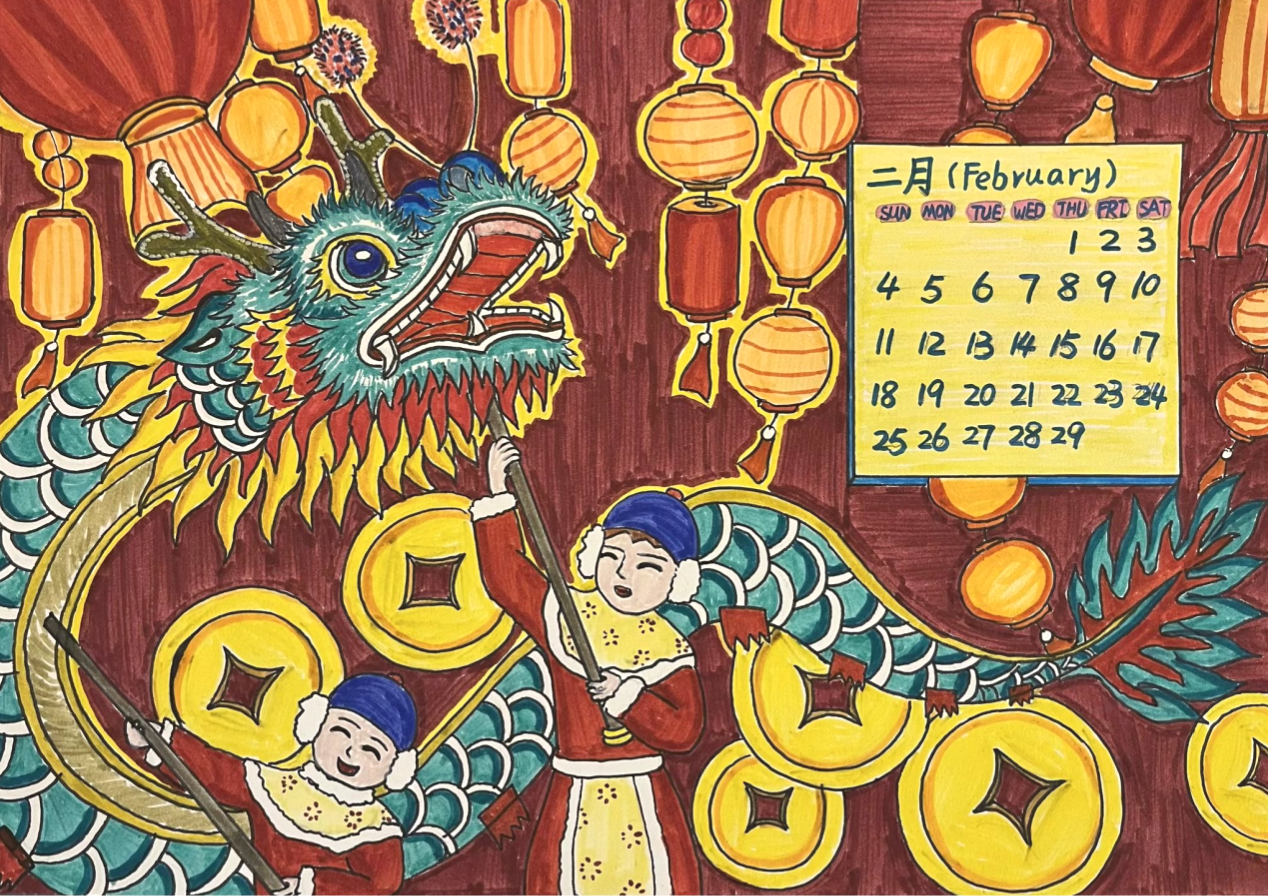 二月(February)
SUN MON TUE WED THU FRI SAT
1 2 3
4 5 6 7 8 9 10
11 12 13 14 15 16 17
18 19 20 21 22 23 24
25 26 27 28 29